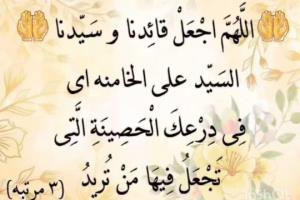 اللَّهُمَّ اجْعَلْ قائِدِنا و سَیِّدنا
السَیِّد علی الخامنه ای
فِی دِرْعِکَ الْحَصِینَةِ الَّتِی
تَجْعَلُ فِیهَا مَنْ تُرِیدُ (۳ مرتبه)